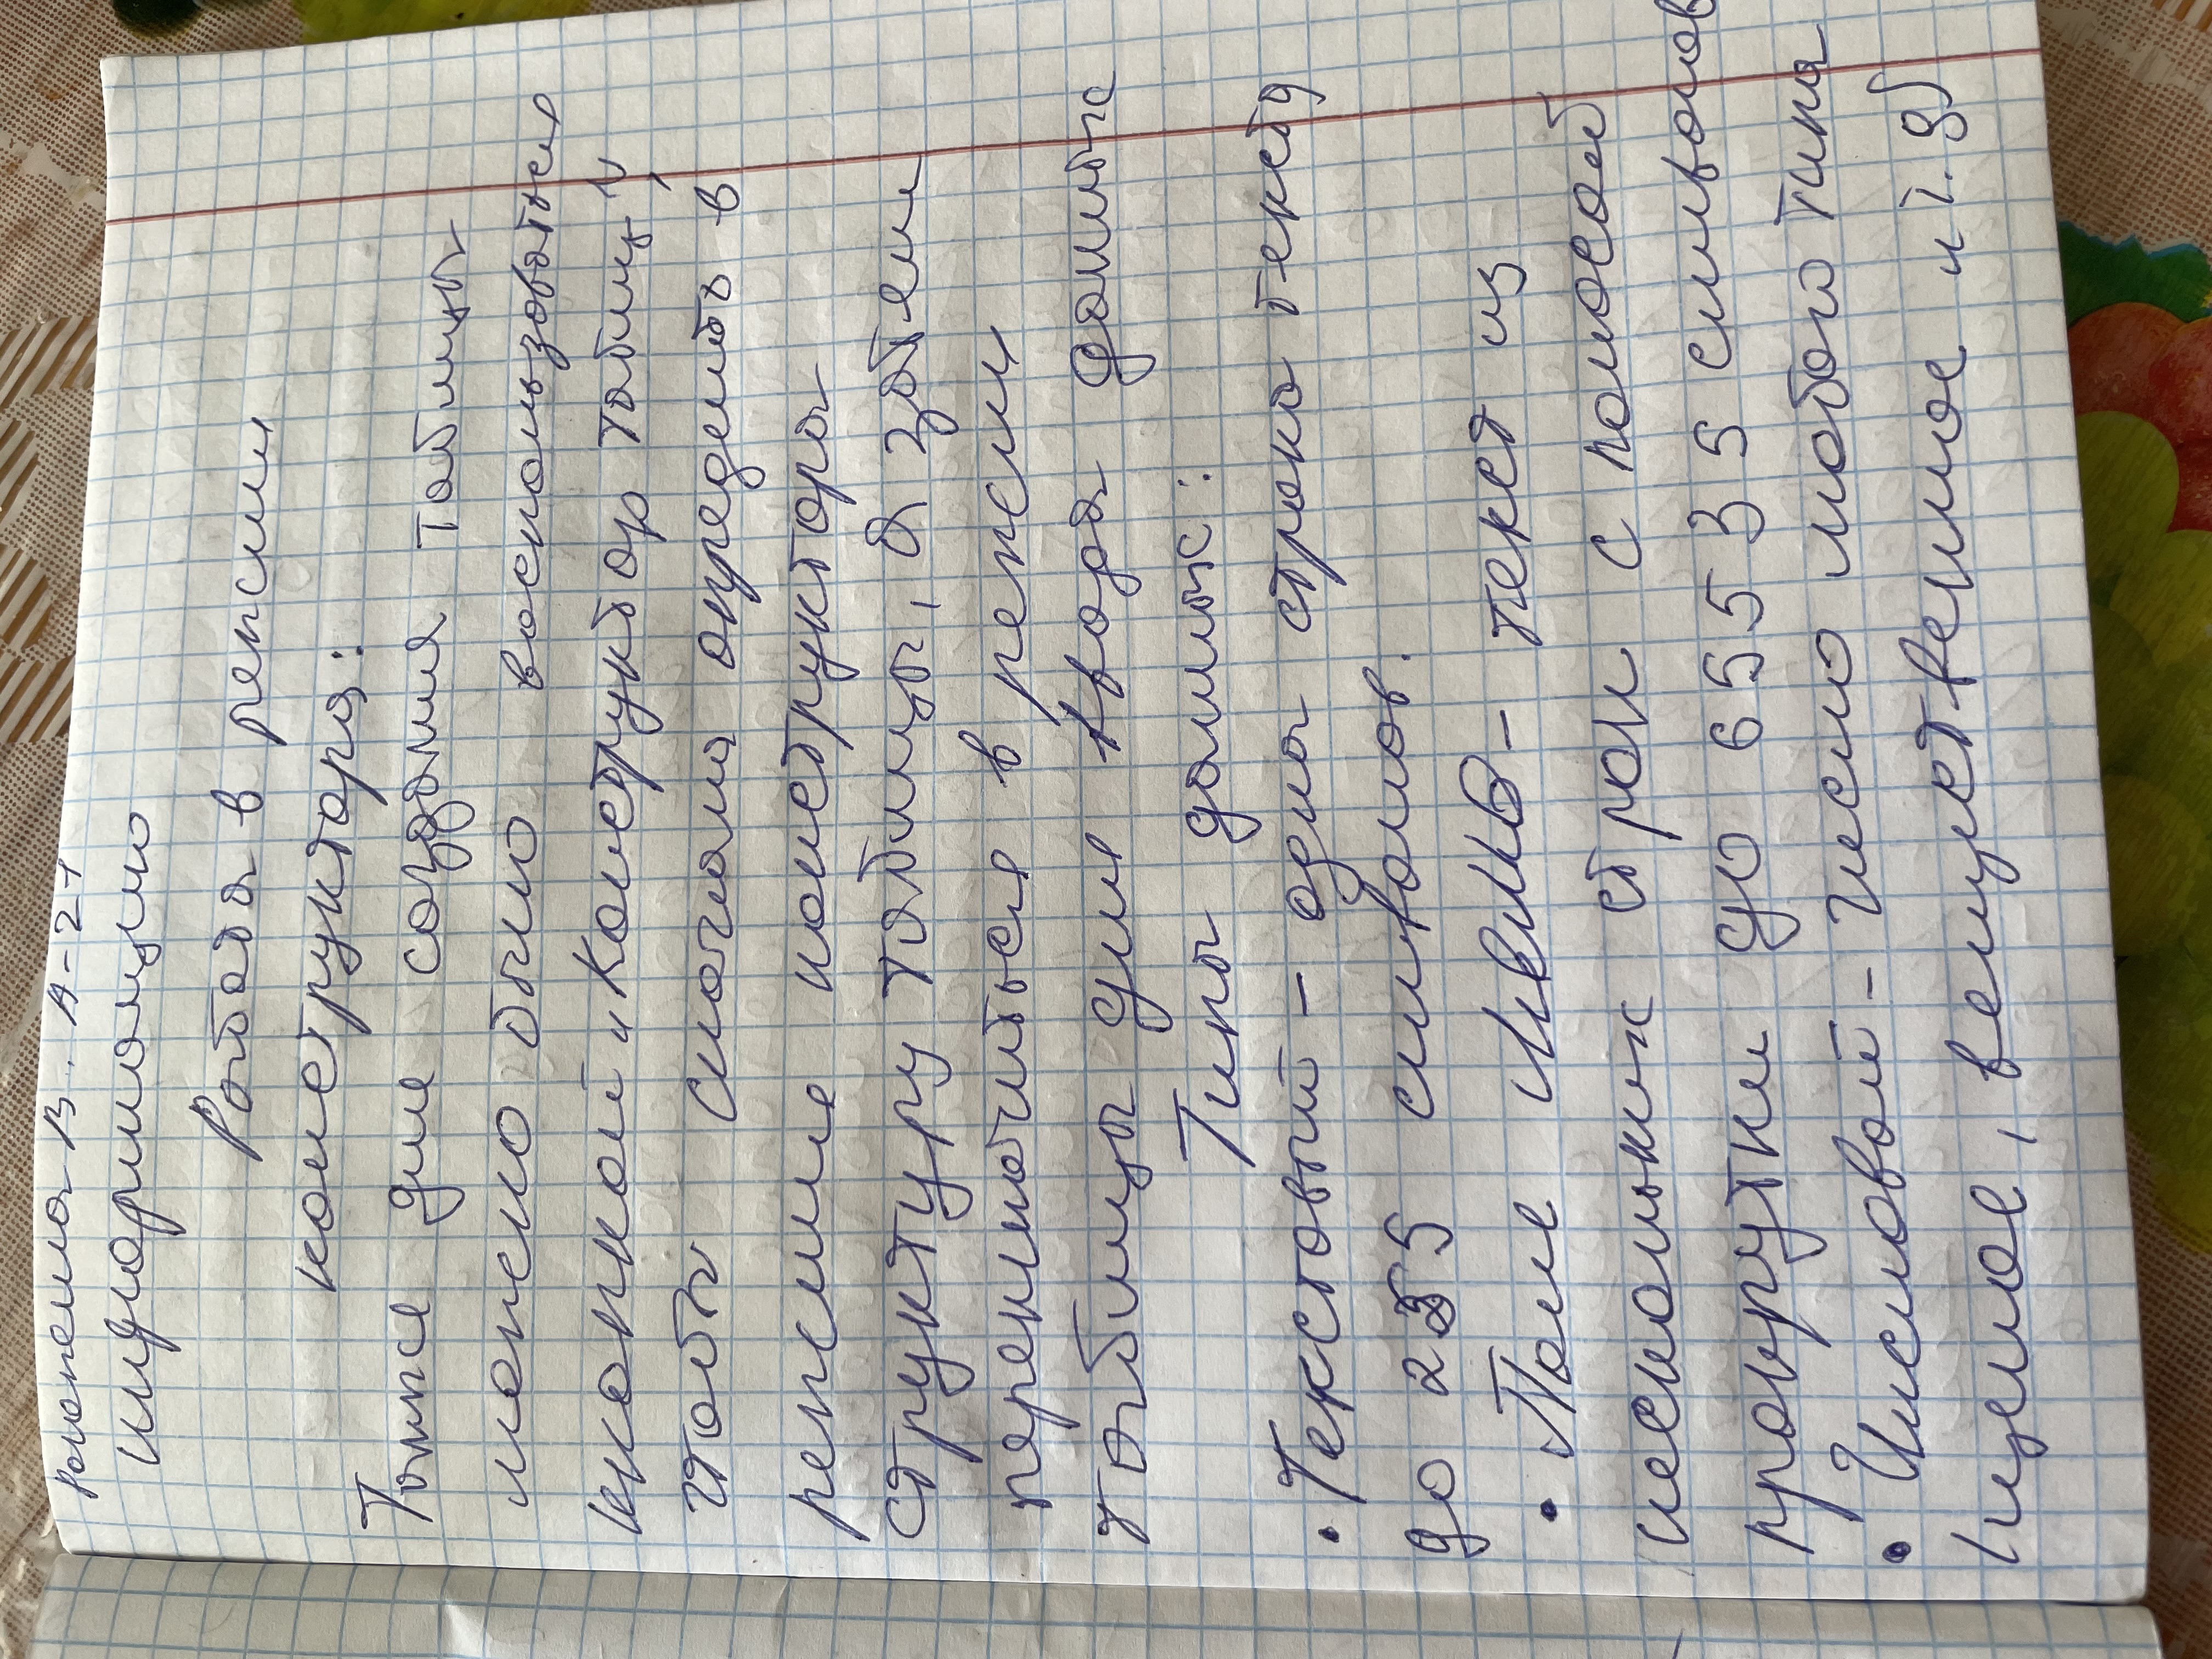 информацию
Работа в режими
конструктора:
Также для создания таблицы
можно было воспользоваться
кнопкой "Конструктор таблиц",
чтобы сначала определить в
режиме конструктора
структуру таблицы, а затем
переключиться в режим
таблицы для ввода данных
Типы данных:
• Текстовый - одна строка текста
до 255 символов.
• Поле МЕМО - текст из
нескольких строк с полосой
прокрутки до 65535 символов
• Числовой - число любого типа
(целое, вещественное и т.д)